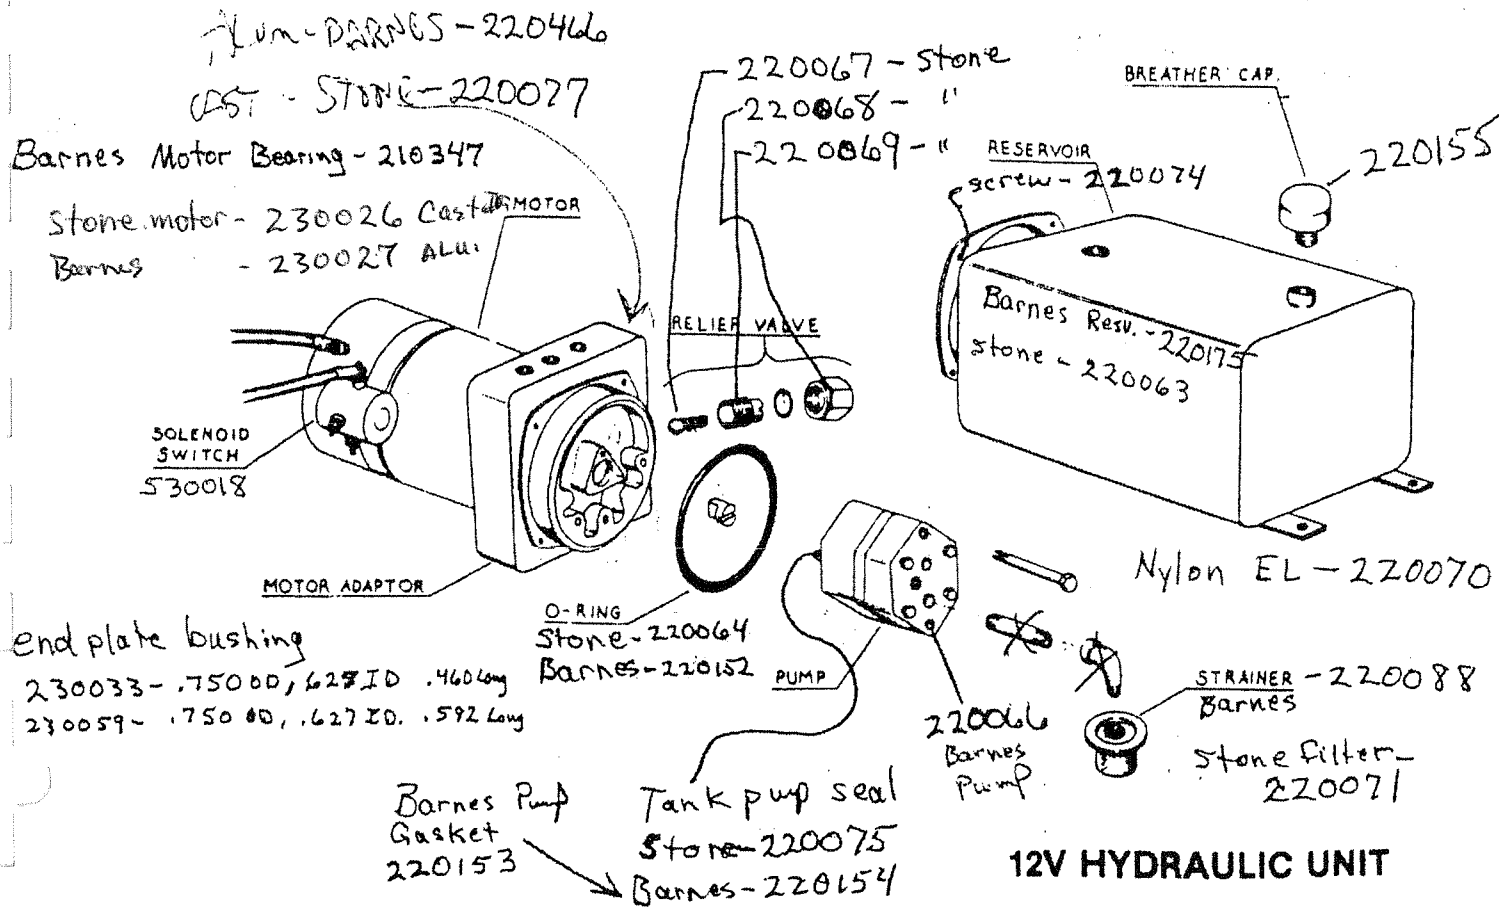 Alum-BARNES-220466
CAST - STONE-220077
Barnes Motor Bearing-210347
Stone motor- 230026 Cast
Barnes - 230027 ALU.
MOTOR
220067-Stone
220068- "
220069- "
BREATHER CAP.
220155
RESERVOIR
screw-220074
RELIEF VALVE
Barnes Resv.-220175
Stone - 220063
SOLENOID
SWITCH
530018
MOTOR ADAPTOR
O-RING
Stone-220064
Barnes-220152
PUMP
Nylon EL-220070
end plate bushing
230033- .750 OD, .627 ID .460 Long
230059- .750 OD, .627 ID. .592 Long
220066
Barnes
Pump
STRAINER -220088
Barnes
Stone filter-
220071
Barnes Pump
Gasket
220153
Tank pump seal
Stone-220075
Barnes-220154
12V HYDRAULIC UNIT